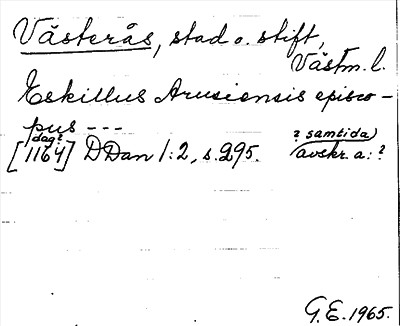 Västerås, stad o. stift,
Västm. l.
Eskillus Arusiensis episco-
pus ---
dag?
[1164] DDan 1:2, s. 295.
? samtida)
avskr. a: ?
G.E. 1965.